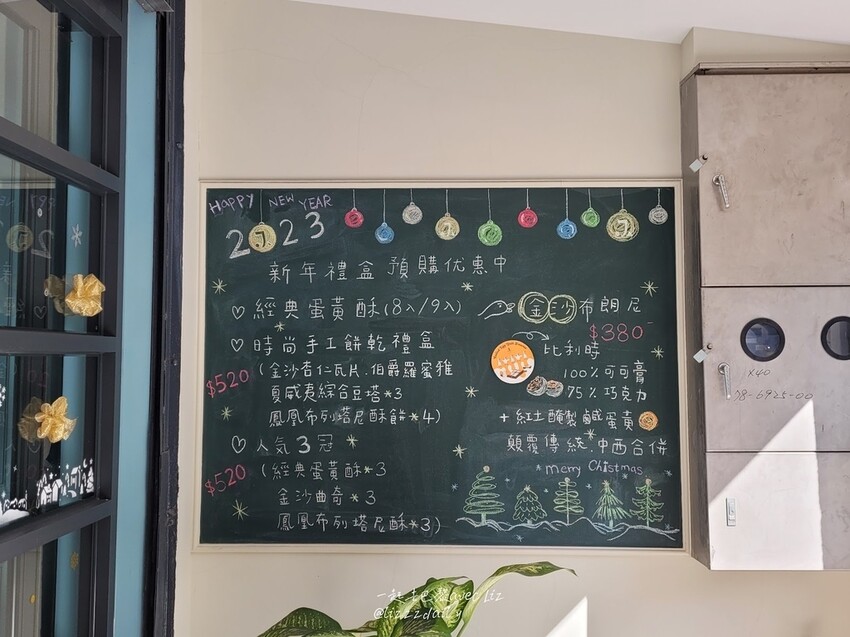 HAPPY NEW YEAR
2023
新年禮盒預購优惠中
♡ 經典蛋黃酥(8入/9入)
♡ 時尚手工餅乾禮盒
$520
(金沙杏仁瓦片.伯爵羅蜜雅
夏威夷綜合豆塔*3
鳳凰布列塔尼酥餅*4)
♡ 人気3冠
$520
(經典蛋黃酥*3
金沙曲奇*3
鳳凰布列塔尼酥*3)
金沙布朗尼
$380
比利時
100%可可膏
75%巧克力
+紅土醃製鹹蛋黃
顛覆傳統.中西合併
merry Chistmas
X40
78-6925-00
avec Liz
@lizzzdaily